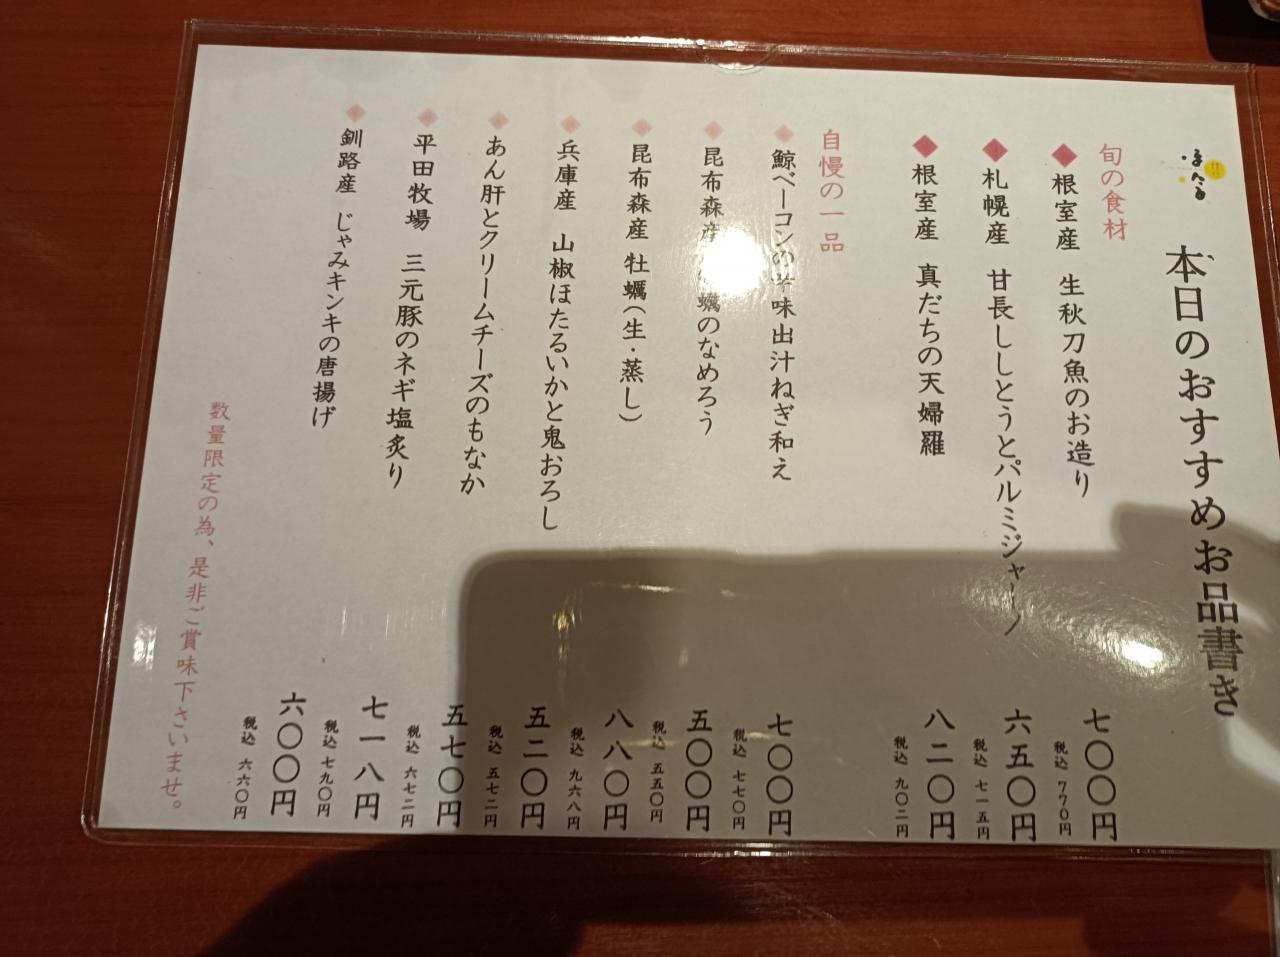 本日のおすすめお品書き
旬の食材
根室産 生秋刀魚のお造り
七〇〇円
税込 770円
札幌産 甘長ししとうとパルミジャーノ
六五〇円
税込 七一五円
根室産 真だちの天婦羅
八二〇円
税込 九〇二円
自慢の一品
鯨ベーコンの辛味出汁ねぎ和え
七〇〇円
税込 七七〇円
昆布森産 蠣のなめろう
五〇〇円
税込 五五〇円
昆布森産 牡蠣（生・蒸し）
八八〇円
税込 九六八円
兵庫産 山椒ほたるいかと鬼おろし
五二〇円
税込 五七二円
あん肝とクリームチーズのもなか
五七〇円
税込 六七二円
平田牧場 三元豚のネギ塩炙り
七一八円
税込 七九〇円
釧路産 じゃみキンキの唐揚げ
六〇〇円
税込 六六〇円
数量限定の為、是非ご賞味下さいませ。